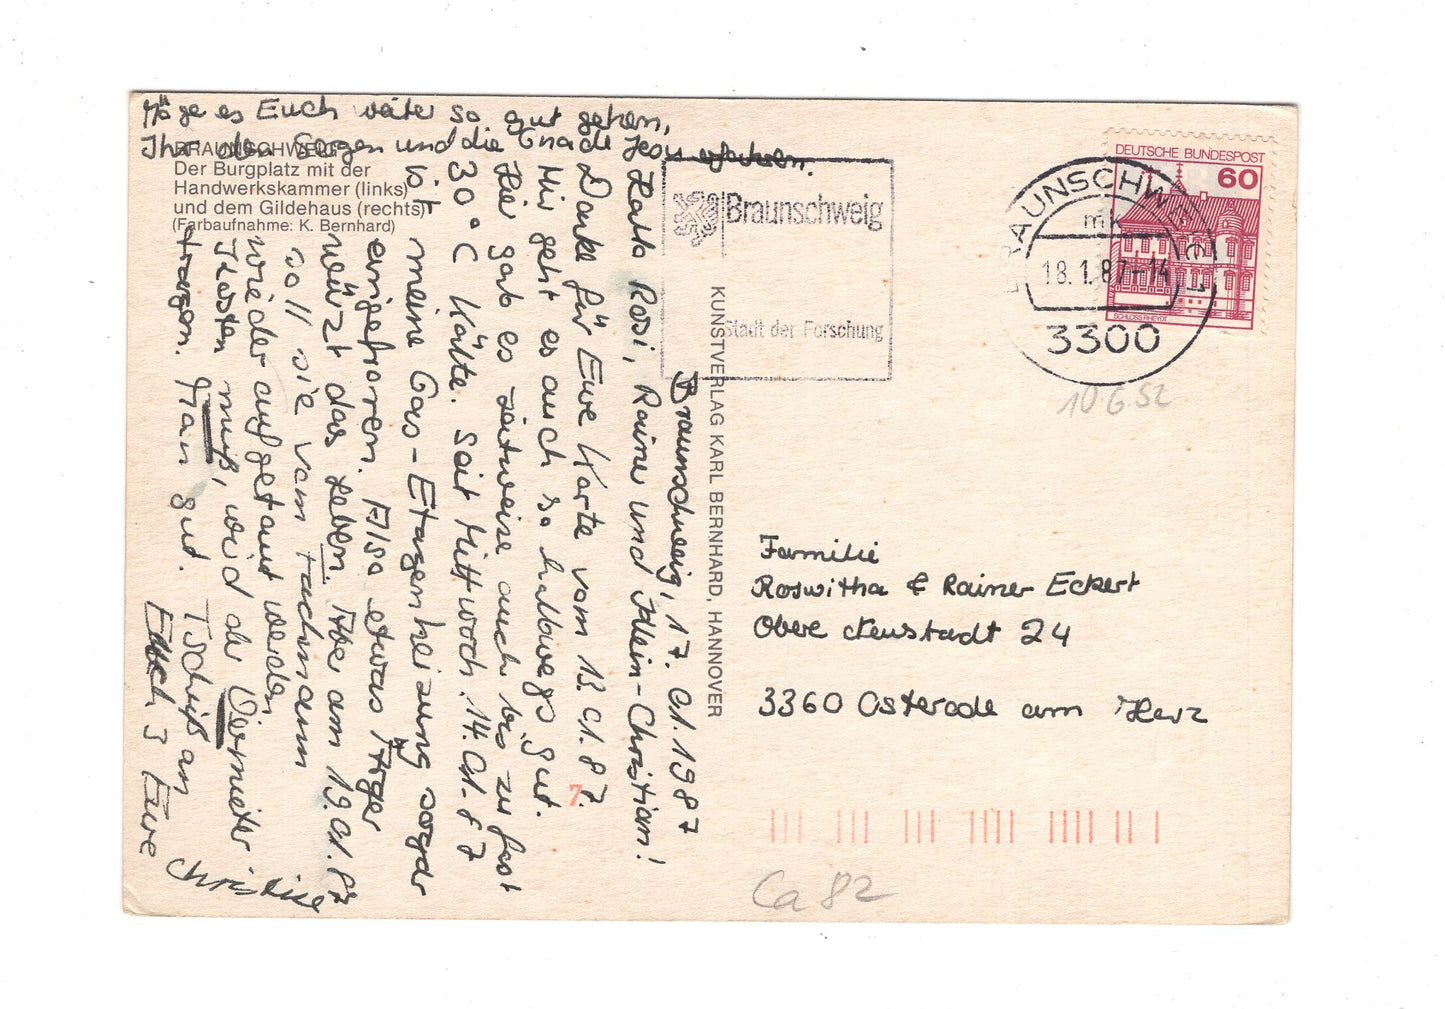 Möge es Euch weiter so gut gehen,
Ihr den Segen und die Gnade Jesu erfahren.
BRAUNSCHWEIG
Der Burgplatz mit der
Handwerkskammer (links)
und dem Gildehaus (rechts)
(Farbaufnahme: K. Bernhard)
Braunschweig, 17.01.1987
Hallo Rosi, Rainer und Klein-Christian!
Danke für Eure Karte vom 13.01.87.
Mir geht es auch so halbwegs gut.
Hier gab es zeitweise auch bis zu fast
30°C Kälte. Seit Mittwoch 14.01.87
ist meine Gas-Etagenheizung sogar
eingefroren. Also etwas Ärger
würzt das Leben. Am 19.01.87
soll sie vom Fachmann
wieder aufgetaut werden
Kosten muß, wird der Vermieter
tragen. Nun gut.
Tschüß am
Euch 3 Eure
Christine
KUNSTVERLAG KARL BERNHARD, HANNOVER
7
Braunschweig
Stadt der Forschung
BRAUNSCHWEIG 1
mk
18.1.87-14
3300
DEUTSCHE BUNDESPOST
60
SCHLOSS RHEYDT
10 6.52
Familie
Roswitha & Rainer Eckert
Obere Neustadt 24
3360 Osterode am Harz
Ca 82